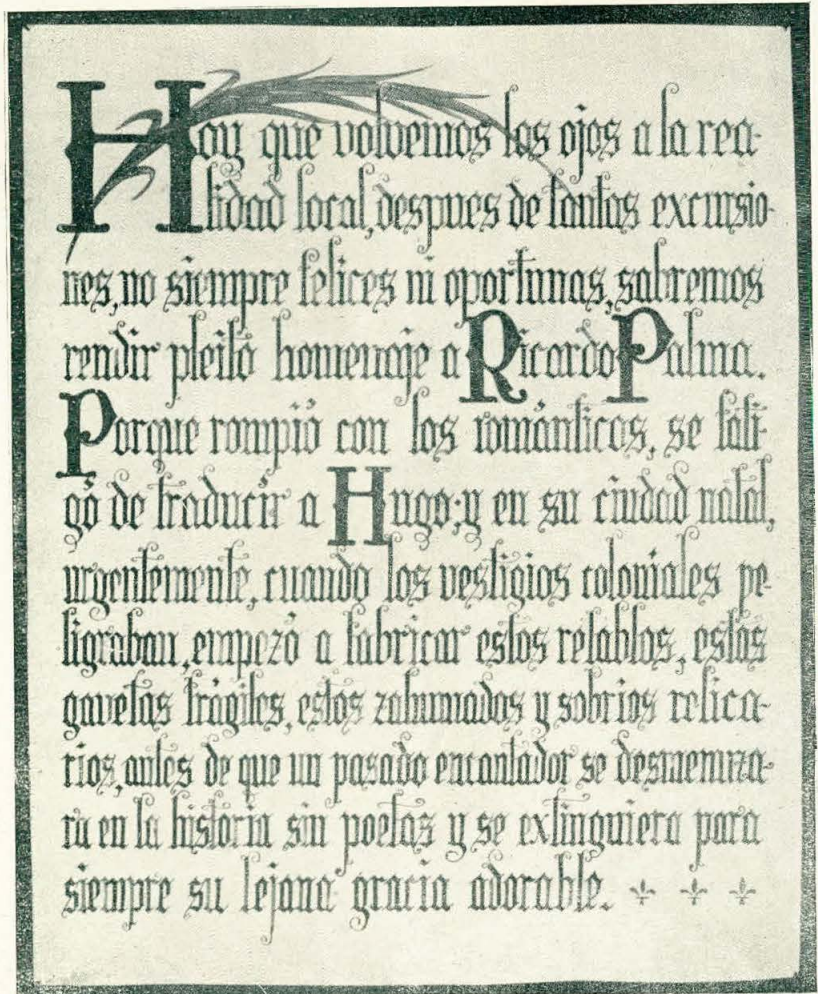 Hoy que volvemos los ojos a la rea-
lidad local, despues de tantas excursio-
nes, no siempre felices ni oportunas, sabremos
rendir pleito homenaje a Ricardo Palma.
Porque rompió con los románticos, se fati-
gó de traducir a Hugo; y en su ciudad natal,
urgentemente, cuando los vestigios coloniales pe-
ligraban, empezó a fabricar estos retablos, estas
gavetas frágiles, estos zahumados y sobrios relica-
rios, antes de que un pasado encantador se desmenuza-
ra en la historia sin poetas y se extinguiera para
siempre su lejana gracia adorable.